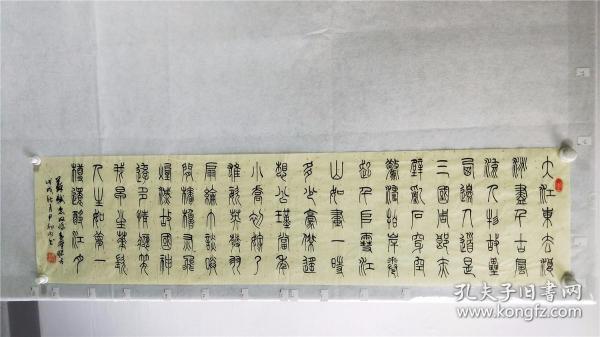 大江東去浪
淘盡千古風
流人物故壘
西邊人道是
三國周郎赤
壁亂石穿空
驚濤拍岸卷
起千堆雪江
山如畫一時
多少豪傑遙
想公瑾當年
小喬初嫁了
雄姿英發羽
扇綸巾談笑
間檣櫓灰飛
煙滅故國神
遊多情應笑
我早生華髮
人生如夢一
樽還酹江月
蘇軾念奴嬌赤壁懷古
戊戌
孔夫子旧书网
www.kongfz.com